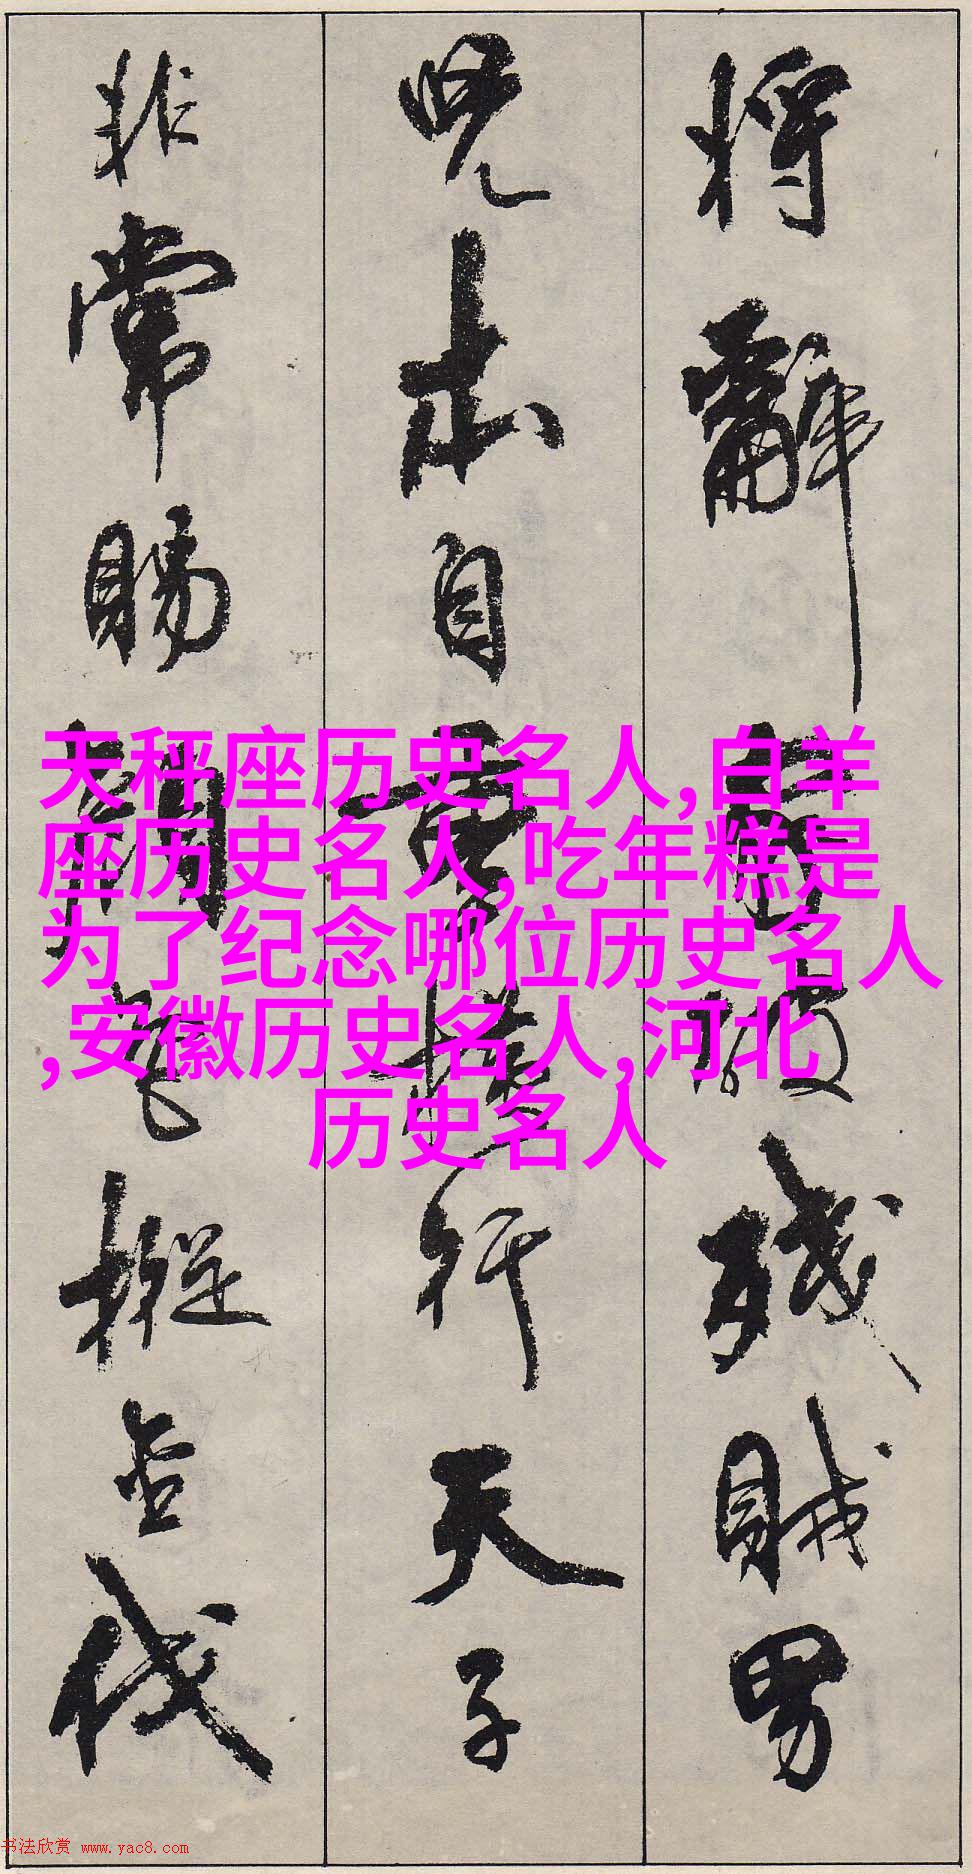 将辞家破残贼男
儿本自重横行天子
非常赐颜色摐金伐
天秤座历史名人,白羊
座历史名人,吃年糕是
为了纪念哪位历史名人
,安徽历史名人,河北
历史名人
书法欣赏 www.yac8.com